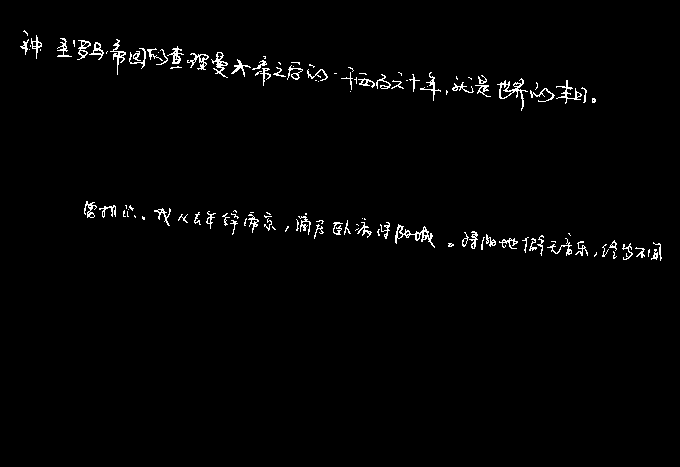 神圣罗马帝国的查理曼大帝之后的一千四百六十年，就是世界的末日。
曾相识。我从去年辞帝京，谪居卧病浔阳城。浔阳地僻无音乐，终岁不闻